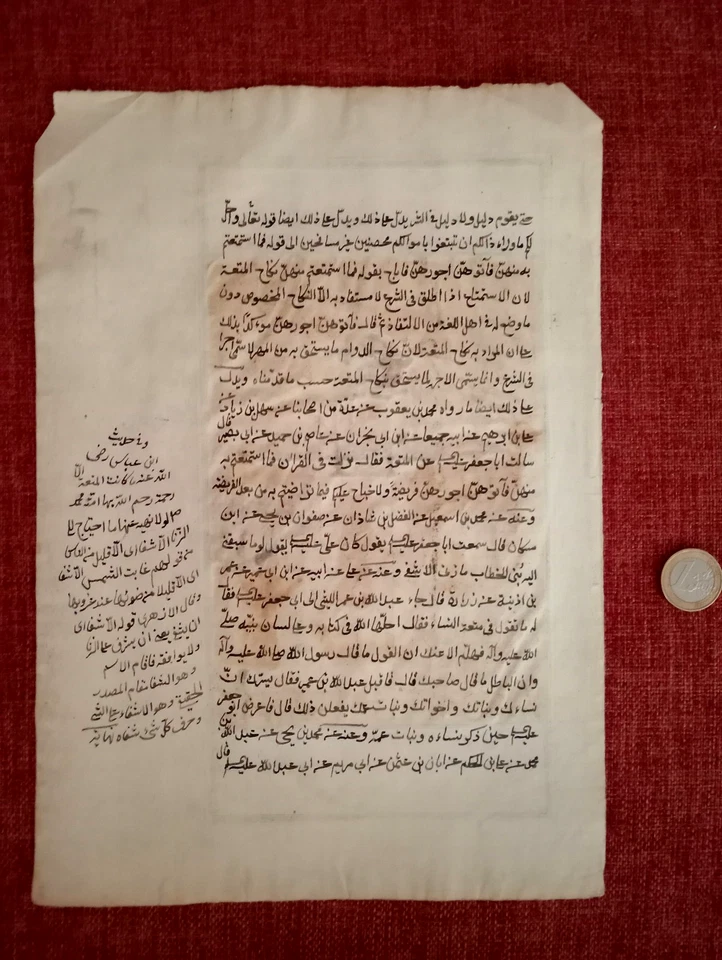 حتى يقوم دليل ولا دليل في الشرع يدل على ذلك ويدل على ذلك ايضا قوله تعالى واحل
لكم ما وراء ذلكم ان تبتغوا باموالكم محصنين غير مسافحين الى قوله فما استمتعتم
به منهن فآتوهن اجورهن فاباح بقوله فما استمتعتم منهن نكاح المتعة
لان الاستمتاع اذا اطلق في الشرع لا مستفاد به الا النكاح المخصوص دون
ما وضع له في اهل اللغة من الالتذاذ ثم قال فآتوهن اجورهن مؤكدا بذلك
على ان المراد به نكاح المتعة لان نكاح الدوام ما يستحق به من المهر لا يسمى اجرا
في الشرع وانما يسمى الاجر لما يستحق بنكاح المتعة حسب ما قدمناه ويدل
على ذلك ايضا ما رواه محمد بن يعقوب عن عدة من اصحابنا عن سهل بن زياد وعن
علي بن ابرهيم عن ابيه جميعا عن ابن ابي نجران عن عاصم بن حميد عن ابي بصير قال
سالت ابا جعفر عن المتعة فقال نزلت في القرآن فما استمتعتم به
منهن فآتوهن اجورهن فريضة ولا جناح عليكم فيما تراضيتم به من بعد الفريضة
وعنه عن محمد بن اسمعيل عن الفضل بن شاذان عن صفوان بن يحيى عن ابن
مسكان قال سمعت ابا جعفر يقول كان علي يقول لولا ما سبقني
اليه بني الخطاب ما زنى الا شفى وعنه عن علي عن ابيه عن ابن ابي عمير عن عمر
بن اذينة عن زرارة قال جاء عبد الله بن عمر الليثي الى ابي جعفر فقال
له ما تقول في متعة النساء فقال احلها الله في كتابه وعلى لسان نبيه صلى
الله عليه وآله فهلم الاعنك ان القول ما قال رسول الله صلى الله عليه وآله
وان الباطل ما قال صاحبك قال فاقبل عبد الله بن عمير فقال يسرك ان
نساءك وبناتك واخواتك وبنات عمك يفعلن ذلك قال فاعرض ابو جعفر
حين ذكر نساءه وبنات عمه وعنه عن محمد بن يحيى عن عبد الله بن
محمد عن علي بن الحكم عن ابان بن عثمن عن ابي مريم عن ابي عبد الله قال
وفي حديث
ابن عباس رضي
الله عنه ما كانت المتعة الا
رحمة رحم الله بها امة محمد
ص لولا نهيه عنها ما احتاج الى
الزنا الا شفا اي الا قليل من الناس
من قولهم غابت الشمس الا شفا
اي الا قليلا من ضوئها عند غروبها
وقال الازهري قوله الا شفا اي
ان يشفي يعني ان يشرف على الزنا
ولا يواقعه فاقام الاسم
وهو الشفا مقام المصدر
الحقيقي وهو الاشفاء على الشي
وحرف كل شيء شفاه نهاية